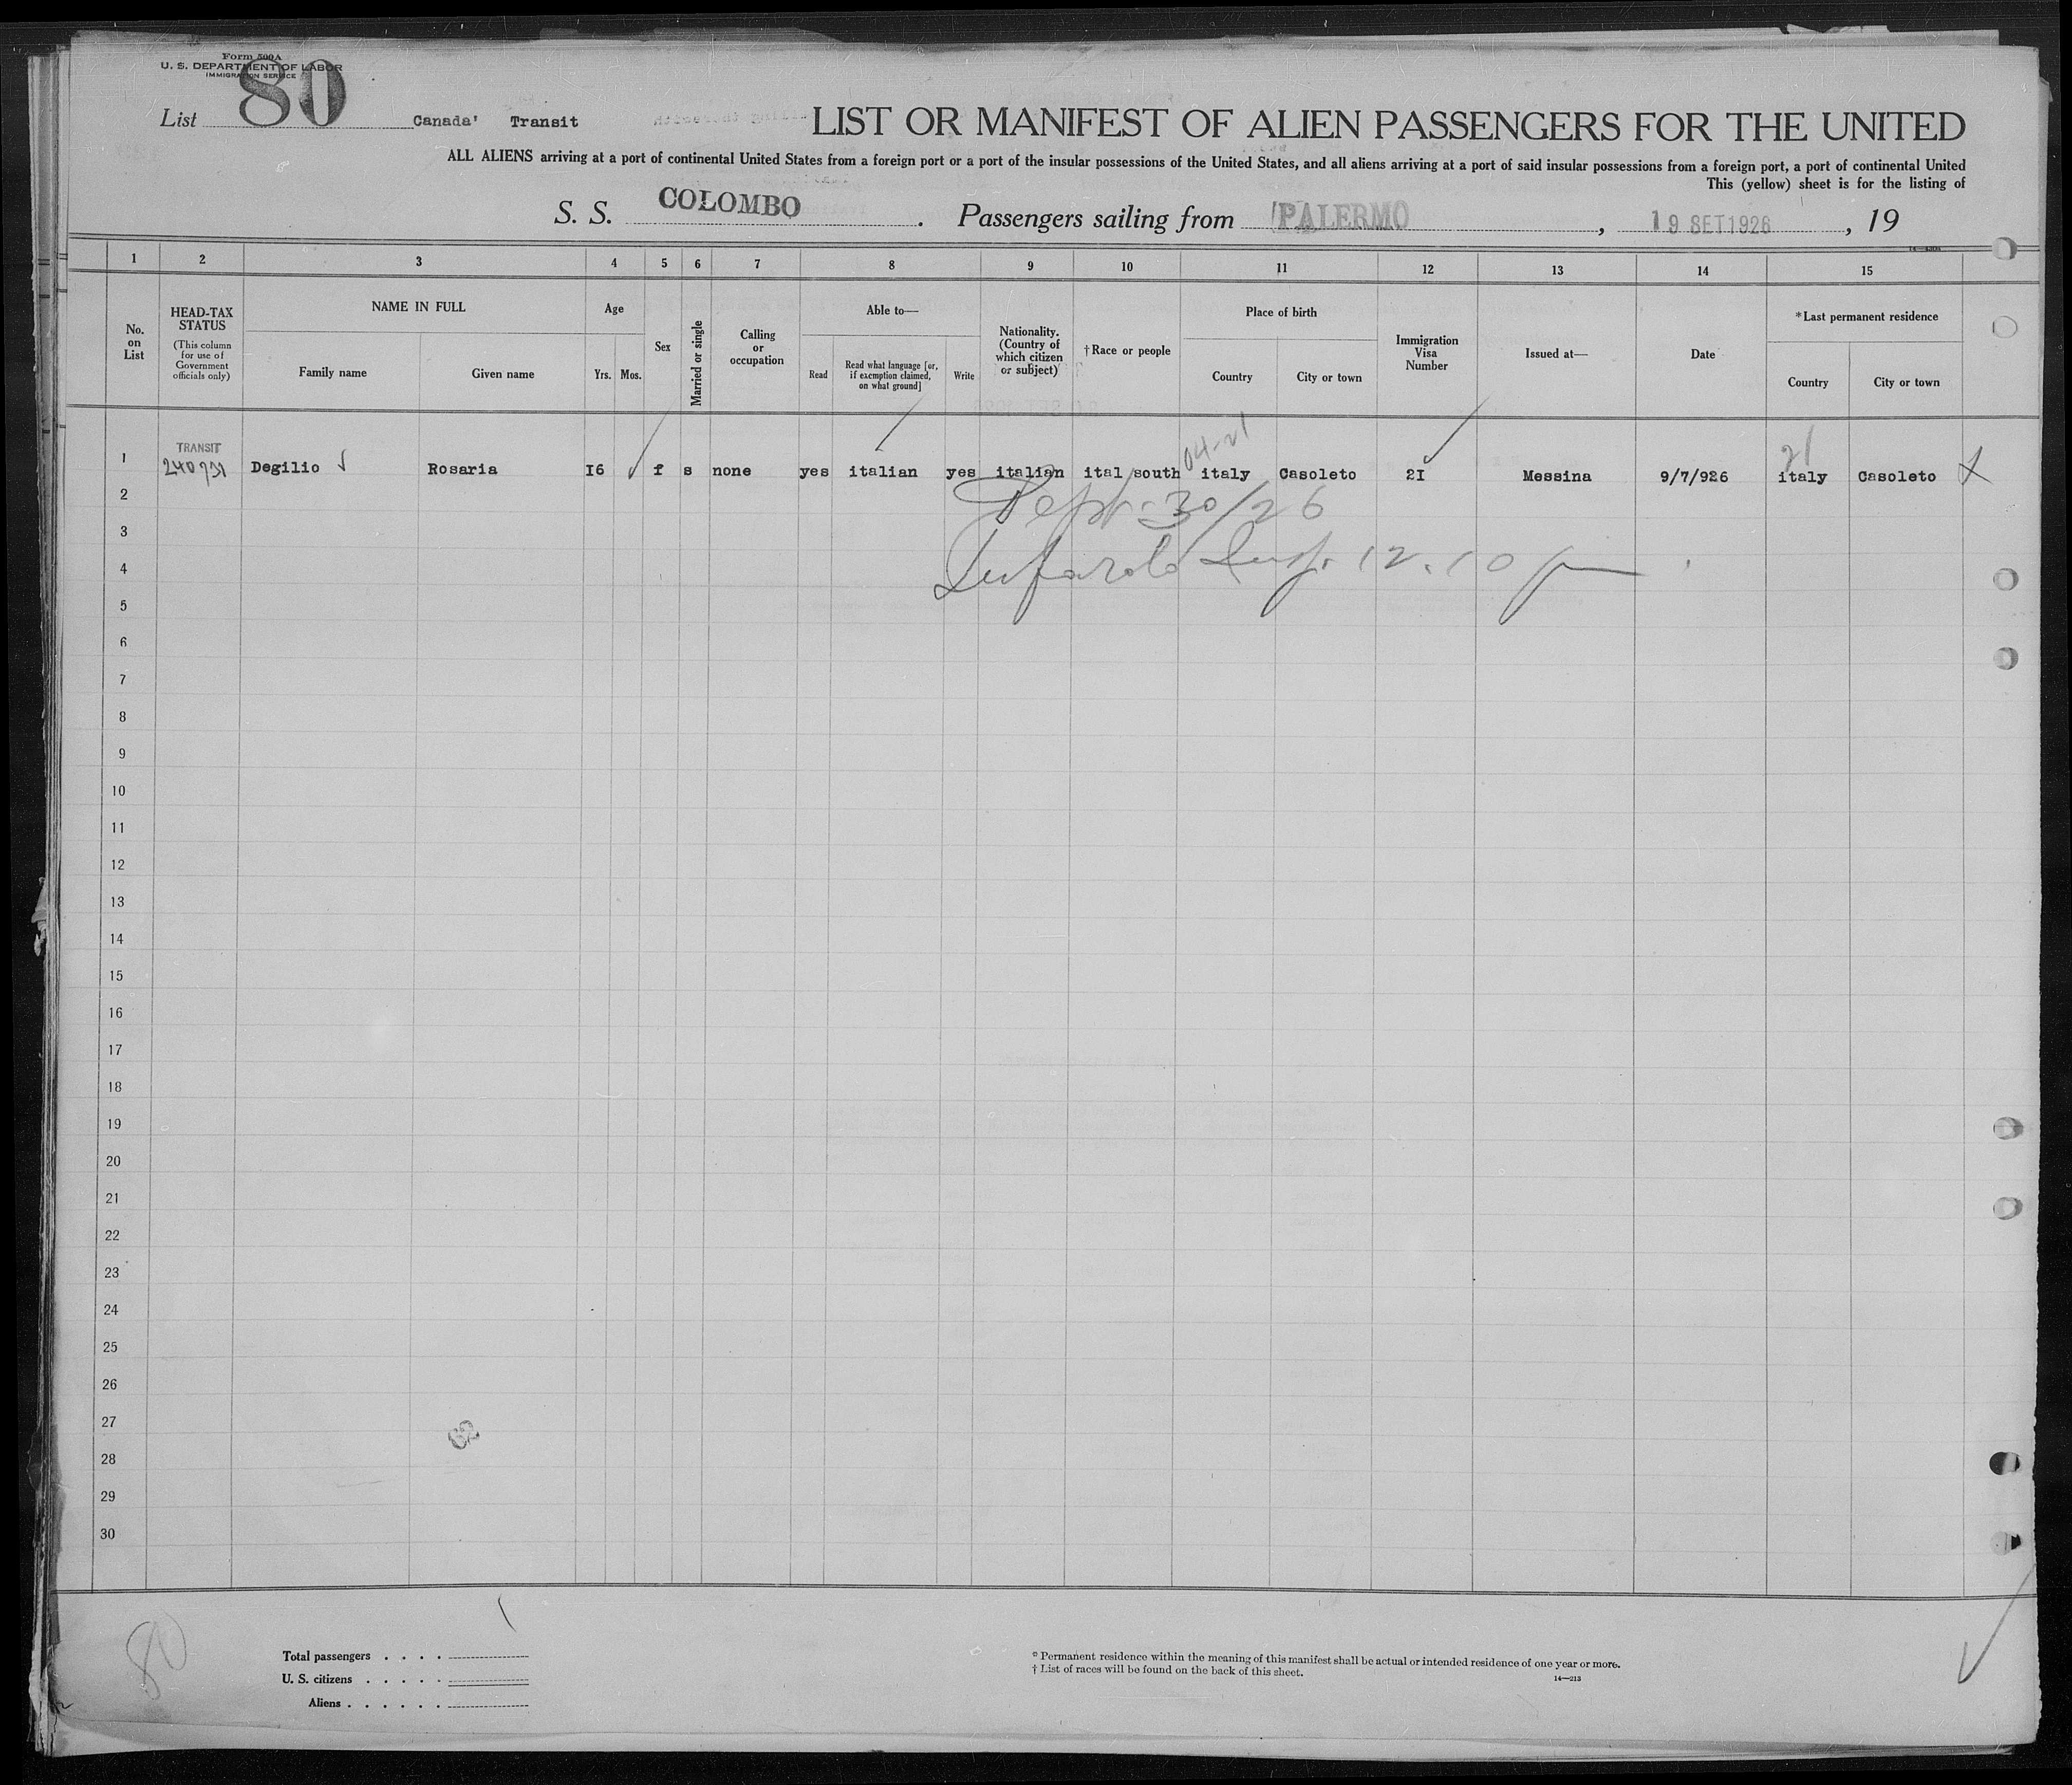 Form 500A
U. S. DEPARTMENT OF LABOR
IMMIGRATION SERVICE
List 80 Canada' Transit
LIST OR MANIFEST OF ALIEN PASSENGERS FOR THE UNITED
ALL ALIENS arriving at a port of continental United States from a foreign port or a port of the insular possessions of the United States, and all aliens arriving at a port of said insular possessions from a foreign port, a port of continental United
This (yellow) sheet is for the listing of
S. S. COLOMBO . Passengers sailing from PALERMO , 19 SET 1926 , 19
1 2 3 4 5 6 7 8 9 10 11 12 13 14 15
No. on List
HEAD-TAX STATUS
(This column for use of Government officials only)
NAME IN FULL
Family name
Given name
Age
Yrs. Mos.
Sex
Married or single
Calling or occupation
Able to—
Read
Read what language [or, if exemption claimed, on what ground]
Write
Nationality. (Country of which citizen or subject)
†Race or people
Place of birth
Country
City or town
Immigration Visa Number
Issued at—
Date
*Last permanent residence
Country
City or town
04-21
21
TRANSIT
1 240731 Degilio Rosaria I6 f s none yes italian yes italian ital south italy Casoleto 2I Messina 9/7/926 italy Casoleto
2
Sept. 30/26
3
4
Insp. 12.10 pm
5
6
7
8
9
10
11
12
13
14
15
16
17
18
19
20
21
22
23
24
25
26
27
28
29
30
80
Total passengers
U. S. citizens
Aliens
* Permanent residence within the meaning of this manifest shall be actual or intended residence of one year or more.
† List of races will be found on the back of this sheet.
14—213